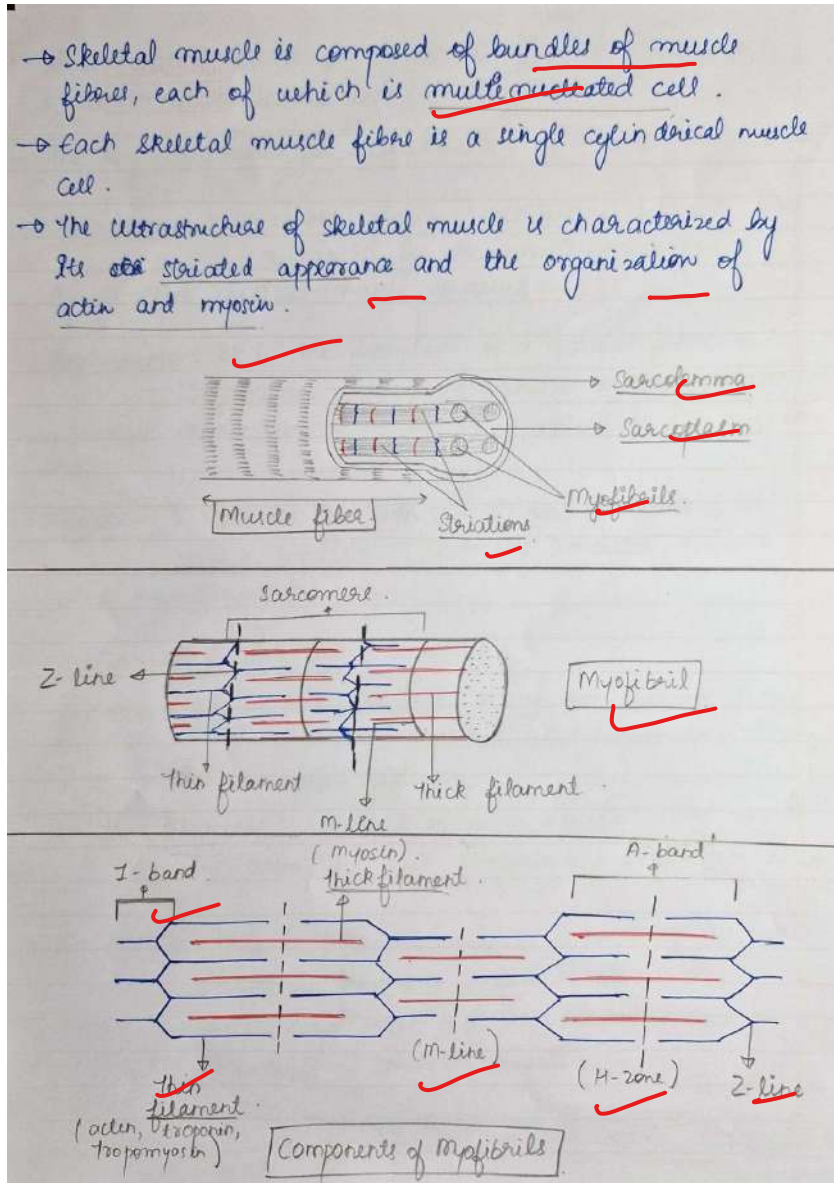 → Skeletal muscle is composed of bundles of muscle
fibres, each of which is multinucleated cell.
→ Each skeletal muscle fibre is a single cylindrical muscle
cell.
→ The ultrastructure of skeletal muscle is characterized by
its striated appearance and the organization of
actin and myosin.
Sarcolemma
Sarcoplasm
Myofibrils.
Muscle fiber.
Striations
Sarcomere.
Z-line
Myofibril
Thin filament
Thick filament.
M-line
(myosin).
Thick filament.
A-band
I-band.
(M-line)
(H-zone)
Z-line
Thin
filament.
(actin, troponin,
tropomyosin)
Components of Myofibrils